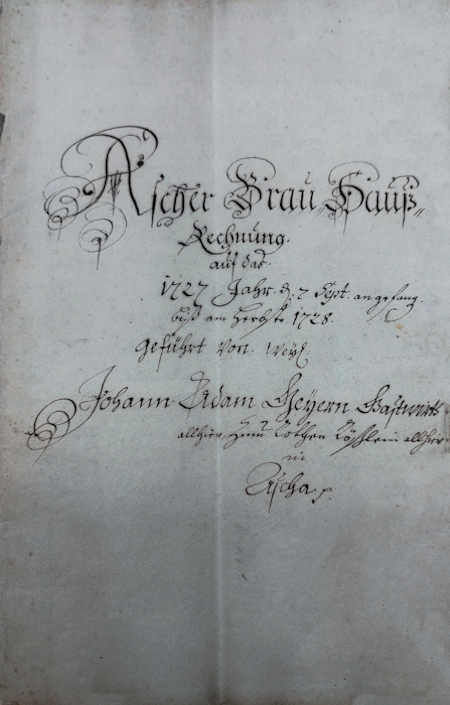 Ascher Brau-Hauß-
Rechnung.
auf das
1727 Jahr. d. 7 Sept. angefang.
biß am Herbste 1728.
geführt von. Weyl:
Johann Adam Geyern Gastwirts
allhier zum Rothen Rößlein allhier
in
Ascha